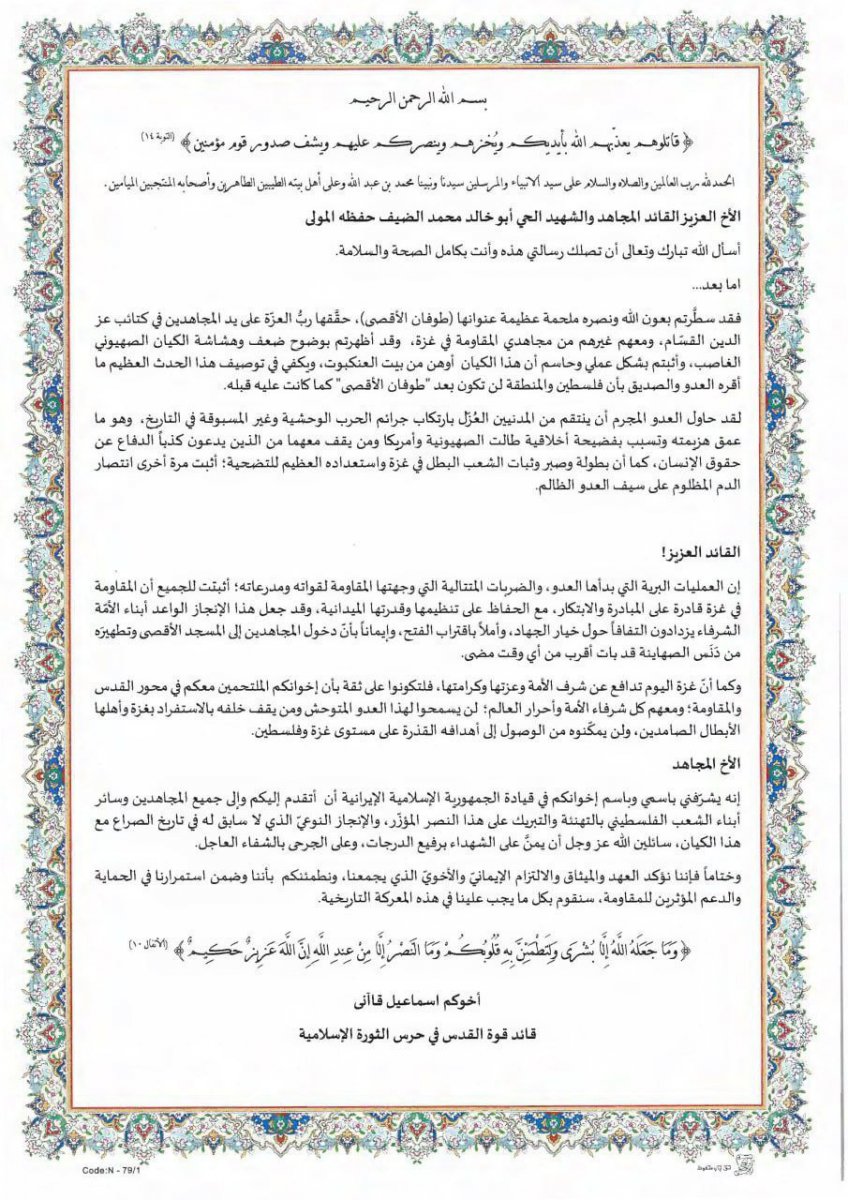 بسم الله الرحمن الرحيم
﴿ قاتلوهم يعذبهم الله بأيديكم ويُخزهم وينصركم عليهم ويشف صدور قوم مؤمنين ﴾ (التوبة ١٤)
الحمدلله رب العالمين والصلاه والسلام على سيد الانبياء والمرسلين سيدنا ونبينا محمد بن عبد الله وعلى أهل بيته الطيبين الطاهرين وأصحابه المنتجبين الميامين.
الأخ العزيز القائد المجاهد والشهيد الحي أبو خالد محمد الضيف حفظه المولى
أسأل الله تبارك وتعالى أن تصلك رسالتي هذه وأنت بكامل الصحة والسلامة.
اما بعد...
فقد سطَّرتم بعون الله ونصره ملحمة عظيمة عنوانها (طوفان الأقصى)، حقَّقها ربُّ العزّة على يد المجاهدين في كتائب عز
الدين القسّام، ومعهم غيرهم من مجاهدي المقاومة في غزة، وقد أظهرتم بوضوح ضعف وهشاشة الكيان الصهيوني
الغاصب، وأثبتم بشكل عملي وحاسم أن هذا الكيان أوهن من بيت العنكبوت، ويكفي في توصيف هذا الحدث العظيم ما
أقره العدو والصديق بأن فلسطين والمنطقة لن تكون بعد "طوفان الأقصى" كما كانت عليه قبله.
لقد حاول العدو المجرم أن ينتقم من المدنيين العُزّل بارتكاب جرائم الحرب الوحشية وغير المسبوقة في التاريخ، وهو ما
عمق هزيمته وتسبب بفضيحة أخلاقية طالت الصهيونية وأمريكا ومن يقف معهما من الذين يدعون كذباً الدفاع عن
حقوق الإنسان، كما أن بطولة وصبر وثبات الشعب البطل في غزة واستعداده العظيم للتضحية؛ أثبت مرة أخرى انتصار
الدم المظلوم على سيف العدو الظالم.
القائد العزيز!
إن العمليات البرية التي بدأها العدو، والضربات المتتالية التي وجهتها المقاومة لقواته ومدرعاته؛ أثبتت للجميع أن المقاومة
في غزة قادرة على المبادرة والابتكار، مع الحفاظ على تنظيمها وقدرتها الميدانية، وقد جعل هذا الإنجاز الواعد أبناء الأمّة
الشرفاء يزدادون التفافاً حول خيار الجهاد، وأملاً باقتراب الفتح، وإيماناً بأنّ دخول المجاهدين إلى المسجد الأقصى وتطهيرَه
من دَنَس الصهاينة قد بات أقرب من أي وقت مضى.
وكما أنّ غزة اليوم تدافع عن شرف الأمة وعزتها وكرامتها، فلتكونوا على ثقة بأن إخوانكم الملتحمين معكم في محور القدس
والمقاومة؛ ومعهم كل شرفاء الأمة وأحرار العالم؛ لن يسمحوا لهذا العدو المتوحش ومن يقف خلفه بالاستفراد بغزة وأهلها
الأبطال الصامدين، ولن يمكّنوه من الوصول إلى أهدافه القذرة على مستوى غزة وفلسطين.
الأخ المجاهد
إنه يشرّفني باسمي وباسم إخوانكم في قيادة الجمهورية الإسلامية الإيرانية أن أتقدم إليكم وإلى جميع المجاهدين وسائر
أبناء الشعب الفلسطيني بالتهنئة والتبريك على هذا النصر المؤزّر، والإنجاز النوعيّ الذي لا سابق له في تاريخ الصراع مع
هذا الكيان، سائلين الله عز وجل أن يمنَّ على الشهداء برفيع الدرجات، وعلى الجرحى بالشفاء العاجل.
وختاماً فإننا نؤكد العهد والميثاق والالتزام الإيمانيّ والأخويّ الذي يجمعنا، ونطمئنكم بأننا وضمن استمرارنا في الحماية
والدعم المؤثرين للمقاومة، سنقوم بكل ما يجب علينا في هذه المعركة التاريخية.
﴿ وَمَا جَعَلَهُ اللَّهُ إِلَّا بُشْرَى وَلِتَطْمَئِنَّ بِهِ قُلُوبُكُمْ وَمَا النَّصْرُ إِلَّا مِنْ عِندِ اللَّهِ إِنَّ اللَّهَ عَزِيزٌ حَكِيمٌ ﴾ (الأنفال ١٠)
أخوكم اسماعيل قاآنى
قائد قوة القدس في حرس الثورة الإسلامية
Code:N - 79/1